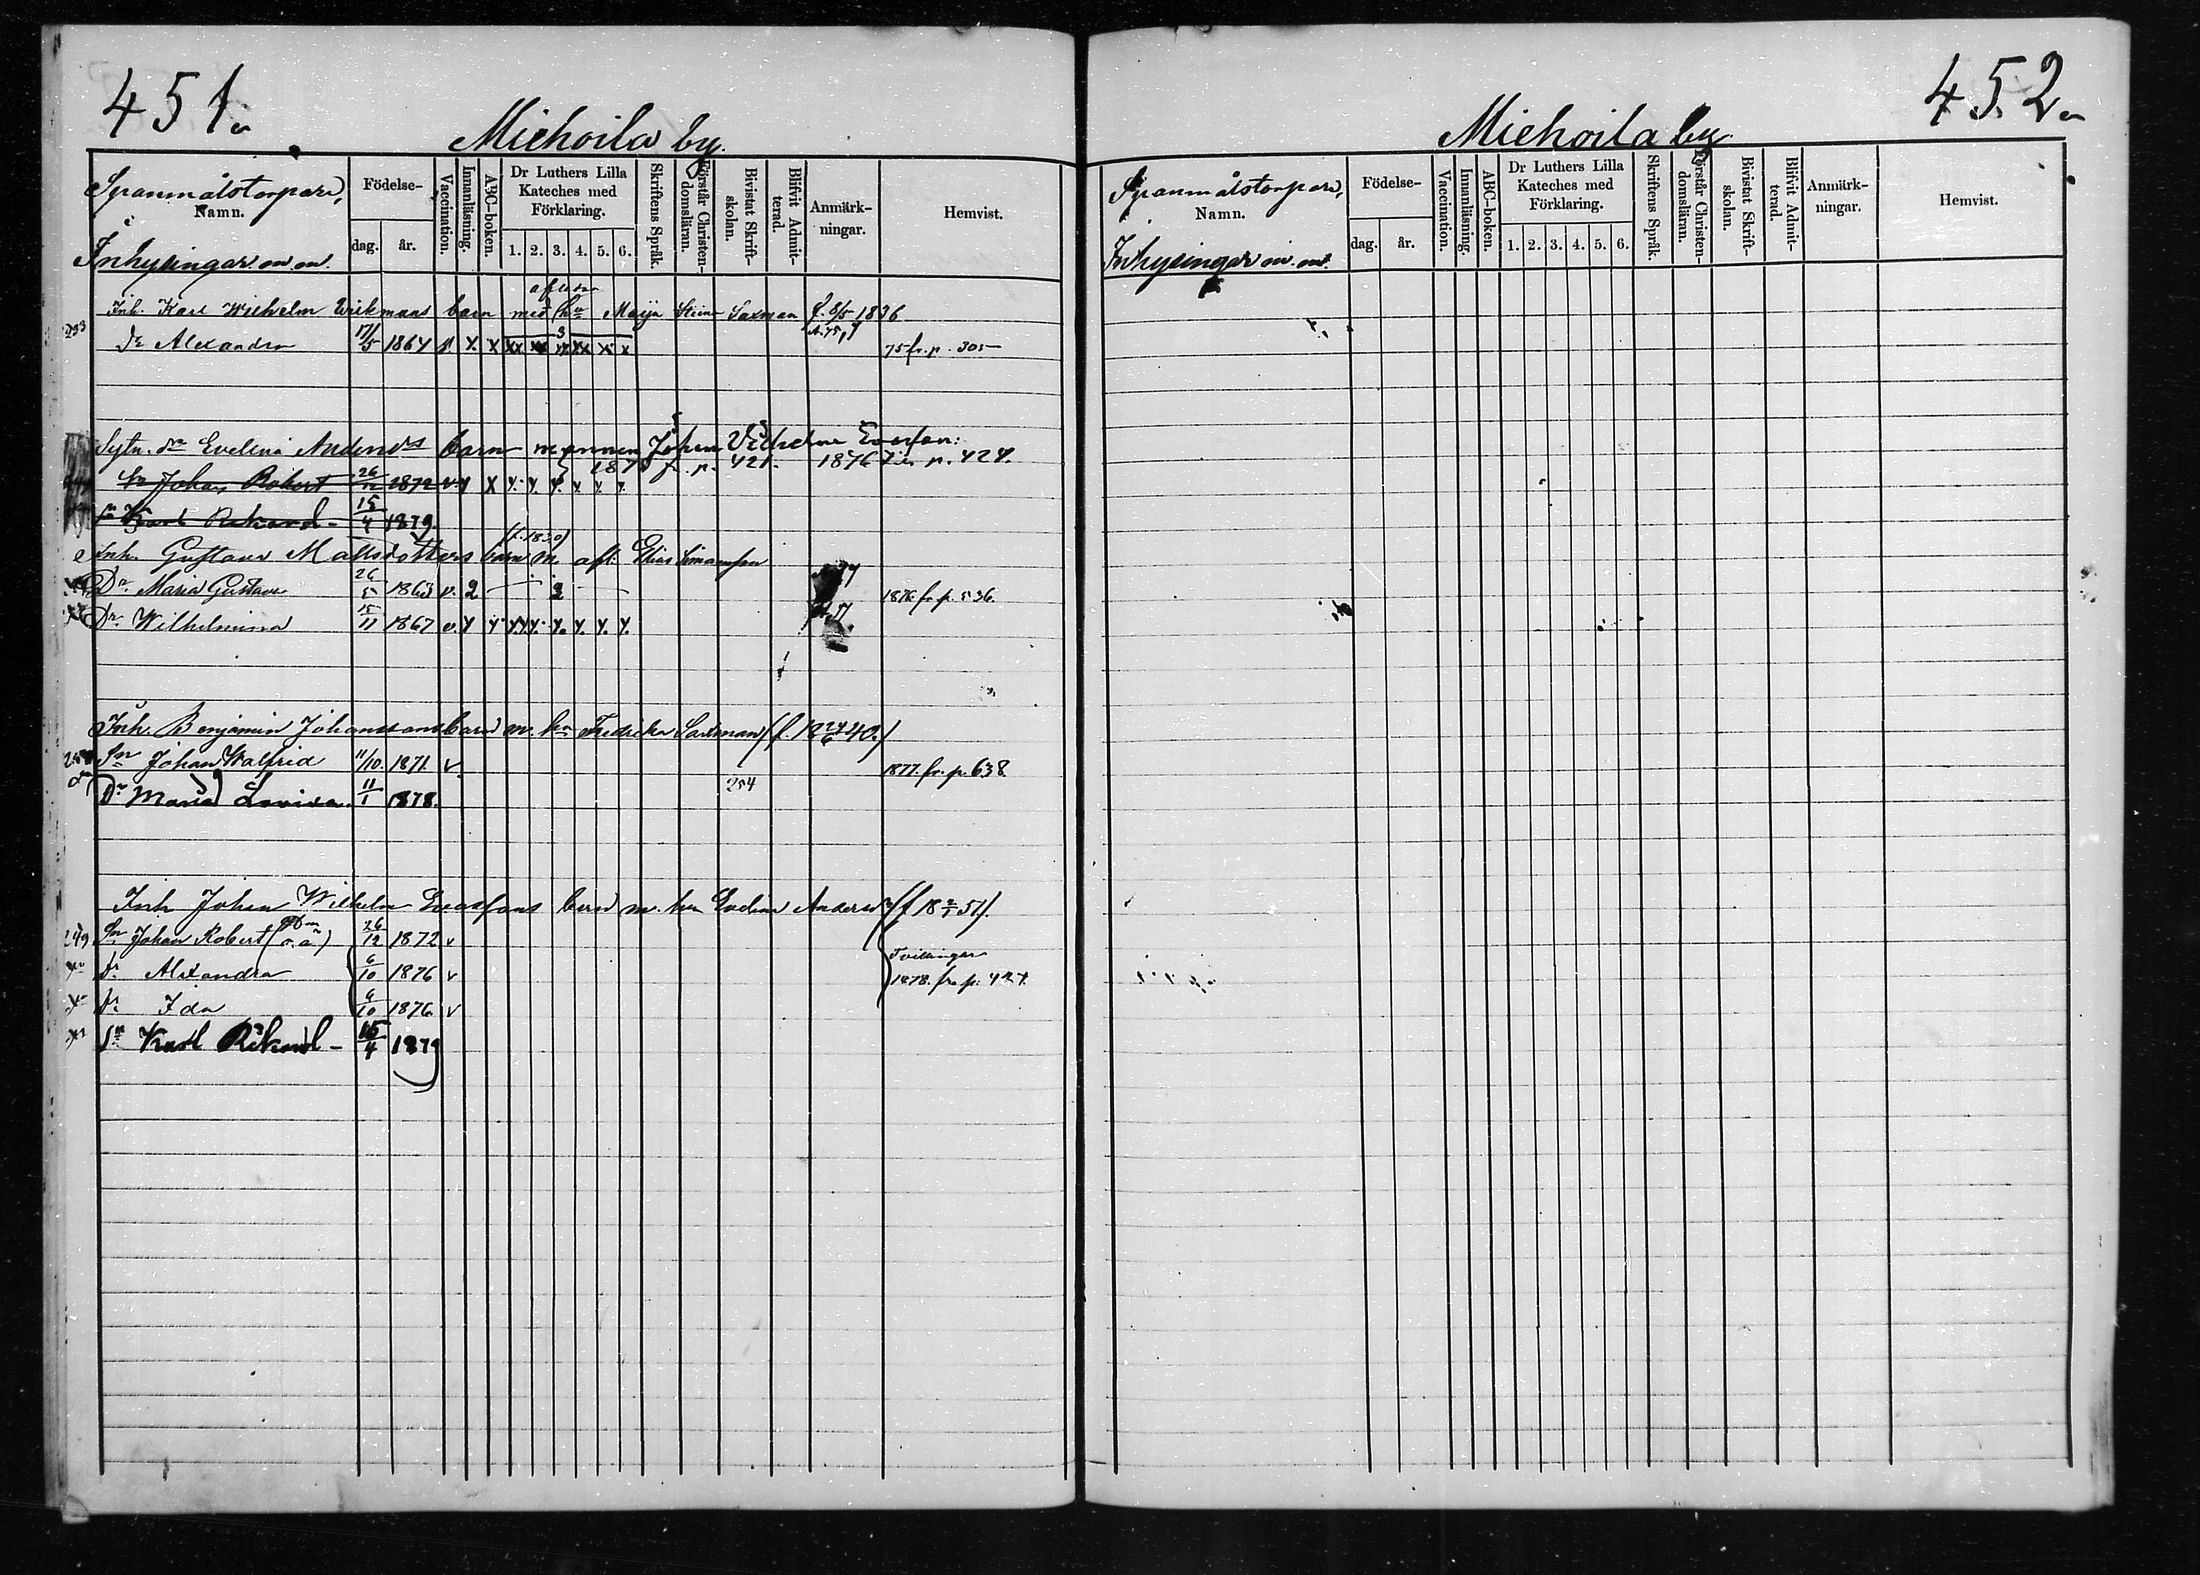 451
Miehoila by.
Syranmålstorpare,
Namn.
Inhysingar m.m.
Födelse-
dag.
år.
Vaccination.
Innanläsning.
ABC-boken.
Dr Luthers Lilla
Kateches med
Förklaring.
1. 2. 3. 4. 5. 6.
Skriftens Språk.
Förstår Christen-
domsläran.
Bivistat Skrift-
skolan.
Blifvit Admit-
terad.
Anmärk-
ningar.
Hemvist.
Inh. Karl Wilhelm Erikssons barn med Maija Stina Saxman f. 8/5 1836
233 Dr Alexandra 17/5 1864 75 fr. p. 305
Evelina Andersdr barn Johan Vilhelm
187 fr. p. 421. 1876 p. 424.
Sn Johan Robert 26/12 1872 v.
Sn Karl Rikard 15/4 1879.
(f. 1830)
Inh. Gustava Mattsdotters barn m. afl. Elias Simonsson
Dr Maria Gustava 26/5 1863 v. 2 2 1876 fr. p. 536.
Dr Wilhelmina 15/11 1867 v.
Inh. Benjamin Johanssons barn m. hu Fredrika Saxman (f. 18 40.)
Sn Johan Walfrid 11/10. 1871. v 1877. fr. p. 638
Dr Maria Lovisa. 11/1 1878. 254
Inh Johan Wilhelm barn m. hu Evelina Andersdr (f 18 51).
249 Sn Johan Robert 26/12 1872 v
Tvillingar
Dr Alexandra 6/10 1876 v 1878. fr. p. 424.
Dr Ida 6/10 1876 v
Sn Karl Rikard 15/4 1879
452
Miehoila by
Syranmålstorpare,
Namn.
Inhysingar m.m.
Födelse-
dag.
år.
Vaccination.
Innanläsning.
ABC-boken.
Dr Luthers Lilla
Kateches med
Förklaring.
1. 2. 3. 4. 5. 6.
Skriftens Språk.
Förstår Christen-
domsläran.
Bivistat Skrift-
skolan.
Blifvit Admit-
terad.
Anmärk-
ningar.
Hemvist.